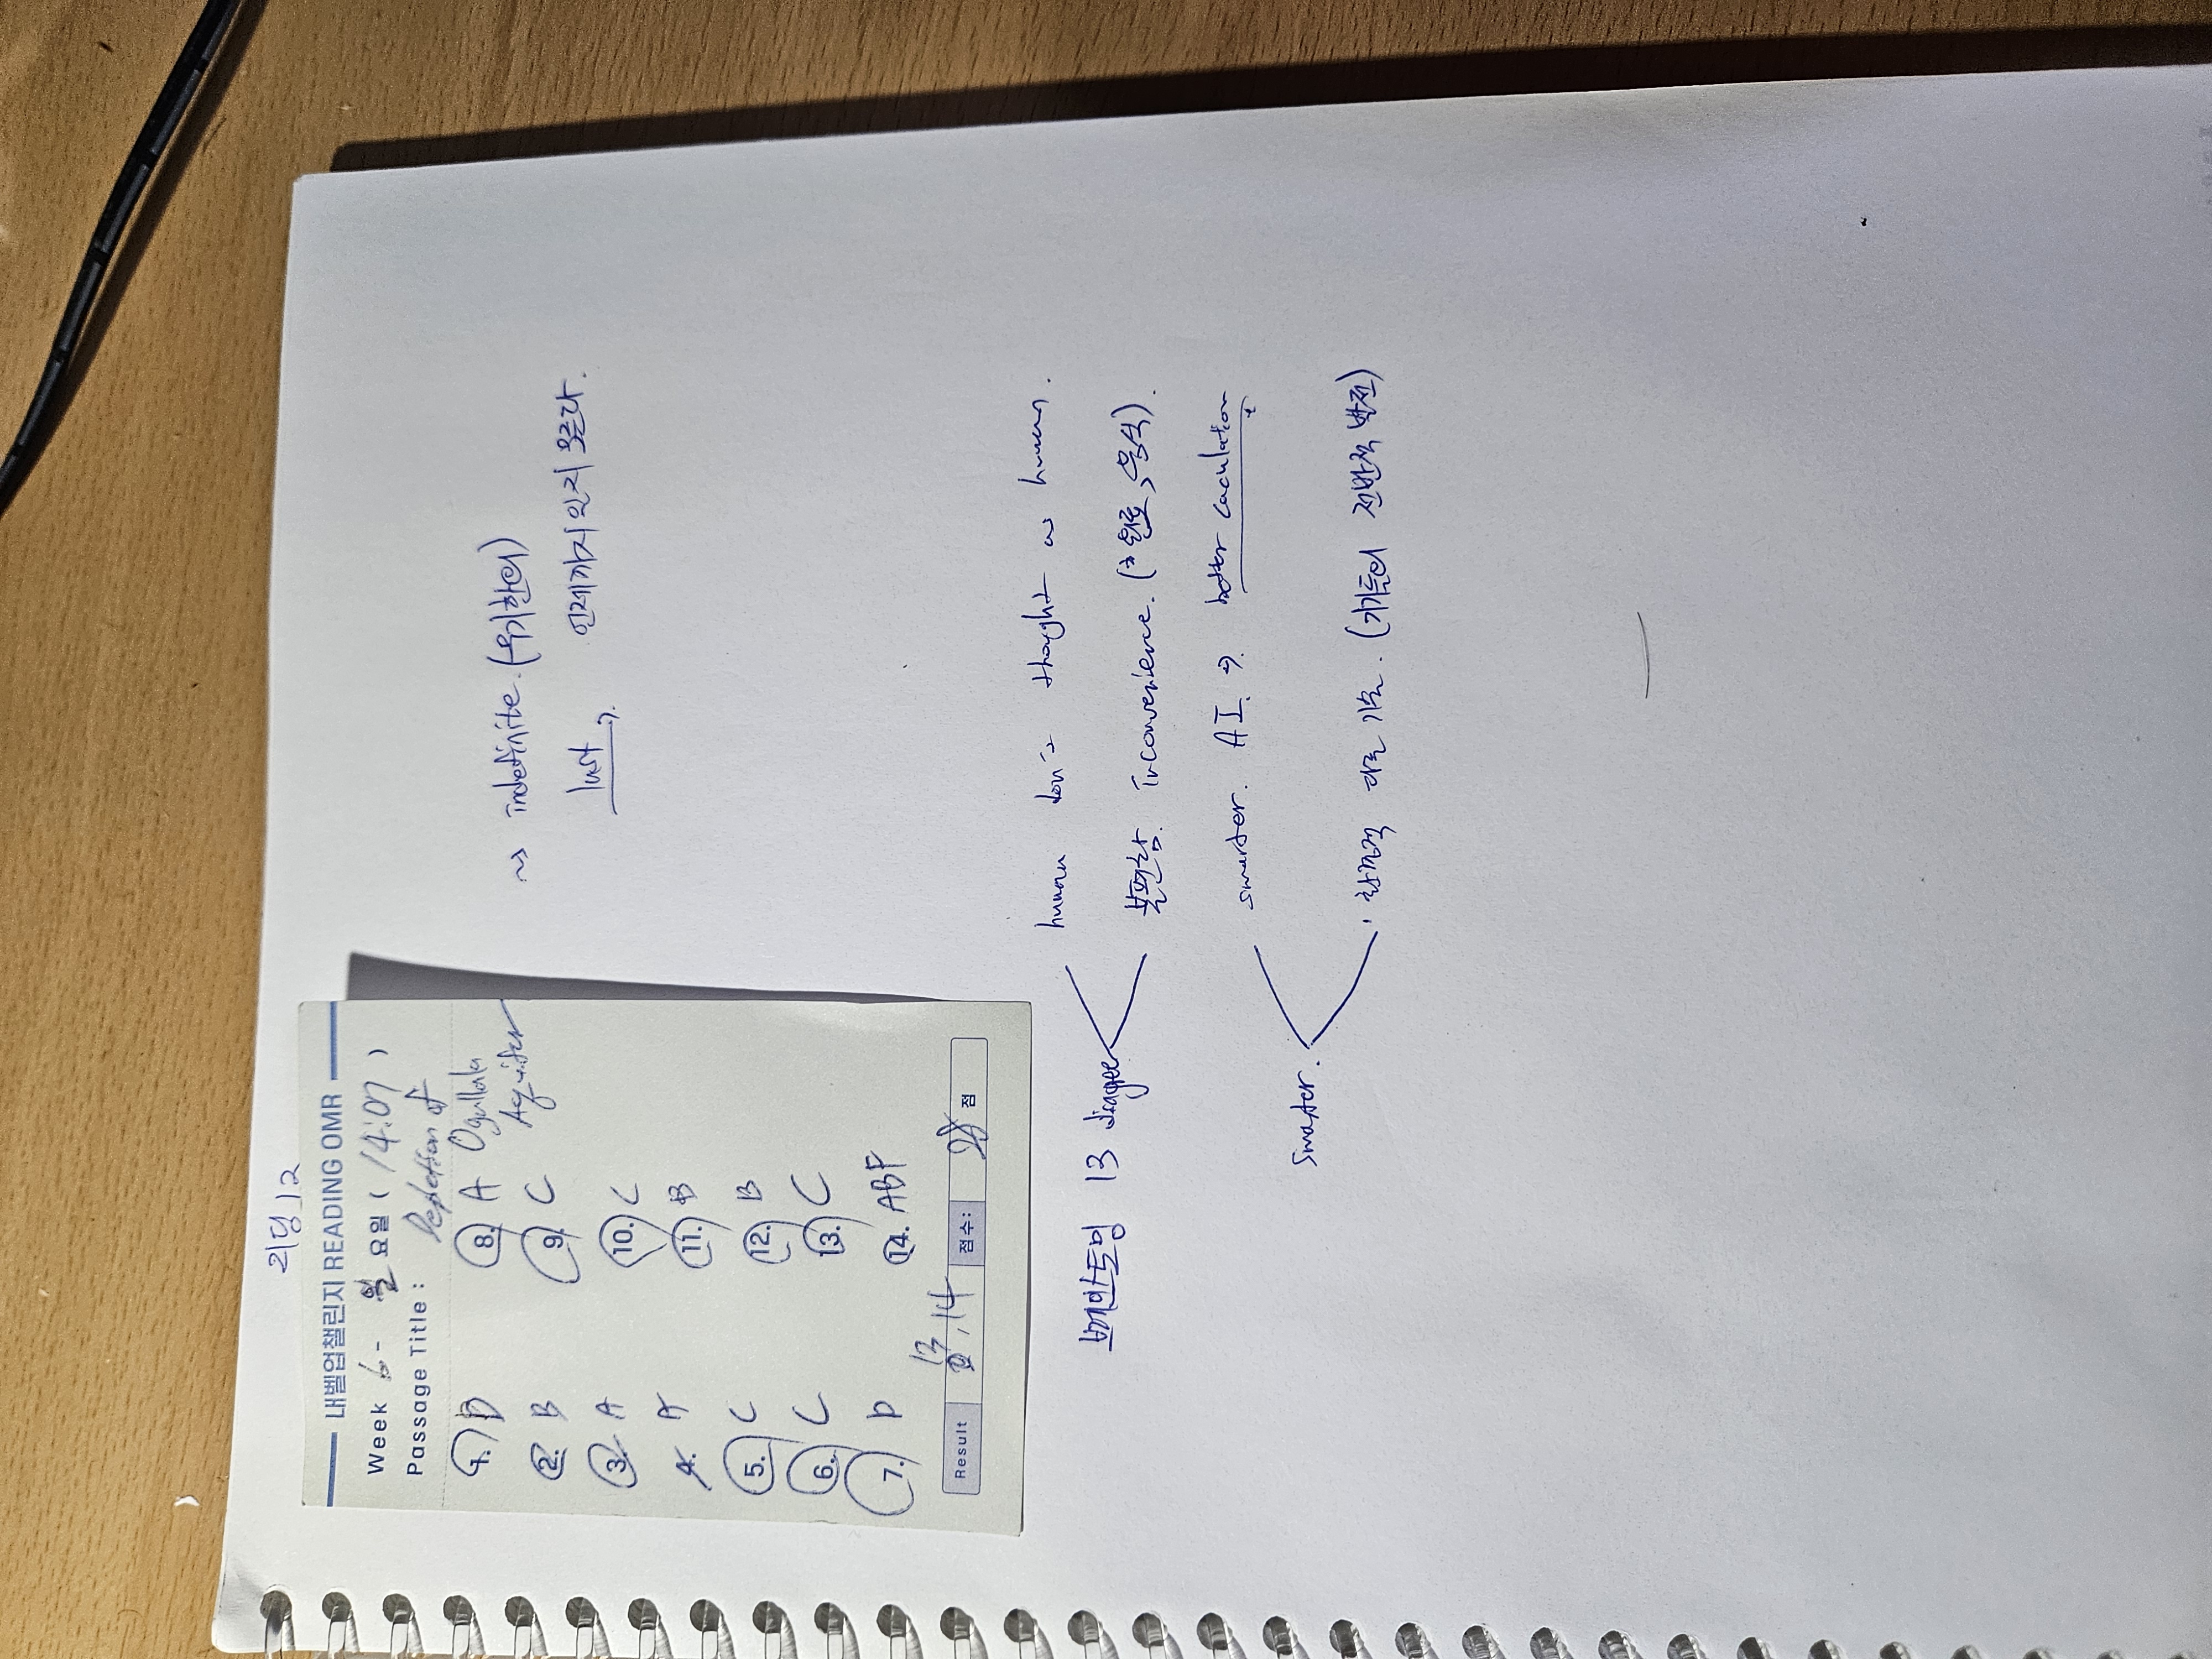 리딩 12
내벨업챌린지 READING OMR
Week 6 - 월 요일 ( 14:07 )
Passage Title : Depletion of
Ogallala
Aquifer
1. D
2. B
3. A
4. A
5. C
6. C
7. D
8. A
9. C
10. C
11. B
12. B
13. C
14. ABF
Result 13/14 점수: 28 점
~> indefinite. (무기한의)
last →. 언제까지인지 모른다.
브레인스토밍 13 disagree
human don't thought as human.
불편함. inconvenience. (치료, 음식).
smarter.
smarter. AI. → better caculation
환경적 기술. (기기들의 전반적 발전)